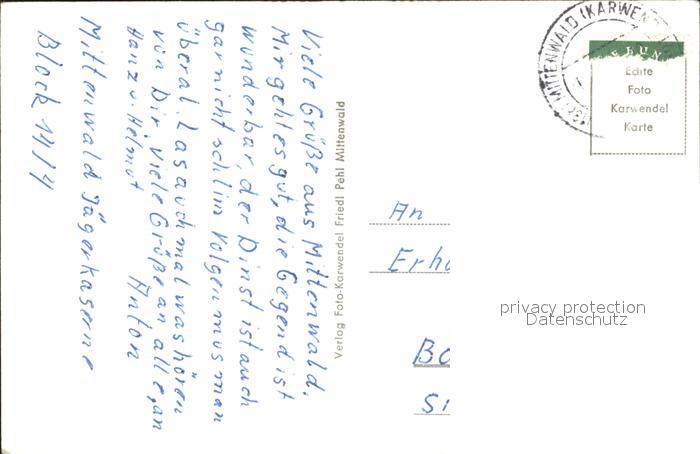 Viele Grüße aus Mittenwald.
Mir geht es gut, die Gegend ist
wunderbar, der Dinst ist auch
gar nicht schlim Volgen mus man
überal. Las auch mal was hören
von Dir viele Grüße an alle, an
Hanz u. Helmut Anton
Mittenwald Jägerkaserne
Block 14/4
Verlag Foto-Karwendel Friedl Pehl Mittenwald
MITTENWALD (KARWEN
Echte
Foto
Karwendel
Karte
An
privacy protection
Datenschutz